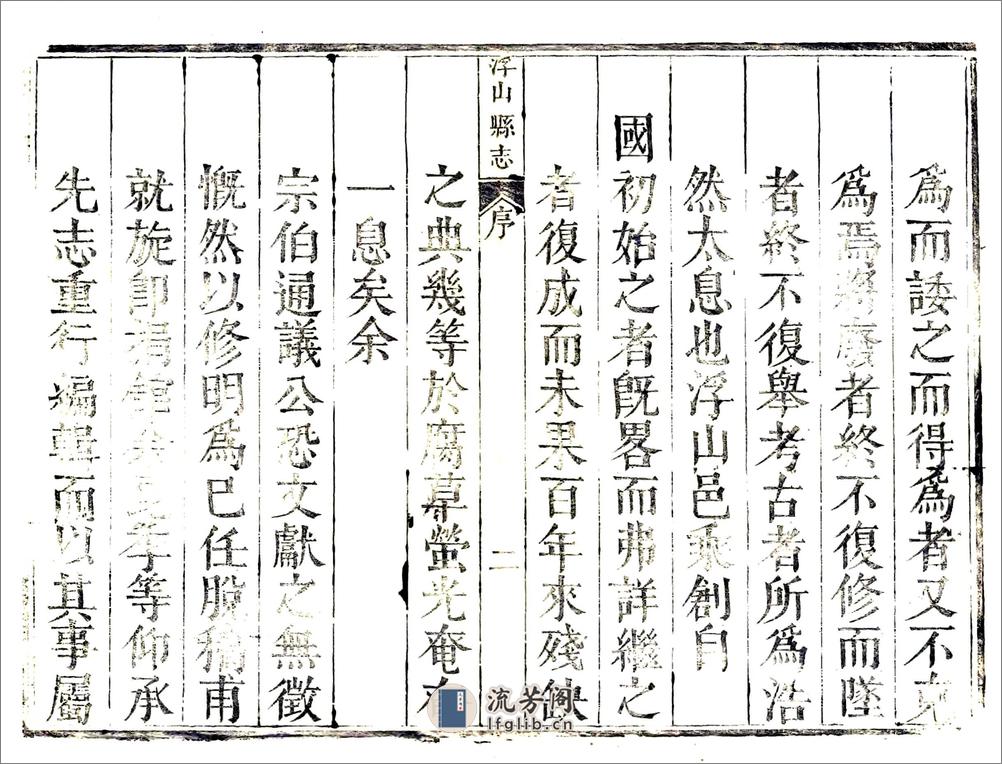 爲而諉之而得爲者又不克
爲焉將廢者終不復修而墜
者終不復舉考古者所爲浩
然太息也浮山邑乘創自
國初始之者旣畧而弗詳繼之
者復成而未果百年來殘缺
浮山縣志
序
二
之典幾等於腐草螢光奄
一息矣余
宗伯通議公恐文獻之無徵
慨然以修明爲己任脫稿甫
就旋卽捐館余兄季等仰承
先志重行編輯而以其事屬
流芳阁
lfglib.cn